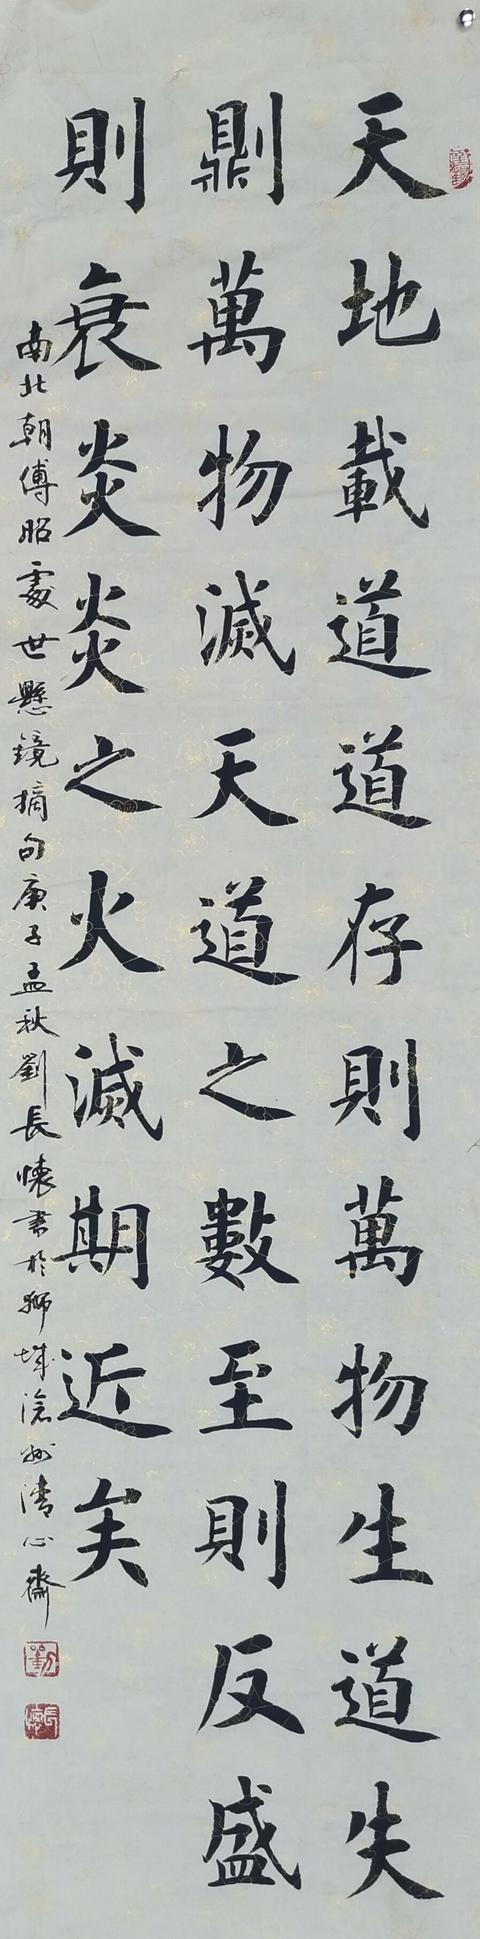 天地載道道存則萬物生道失
𠟭萬物滅天道之數至則反盛
則衰炎炎之火滅期近矣
南北朝傅昭處世懸鏡摘句庚子孟秋劉長懷書於獅城滄州清心齋
劉
長懷